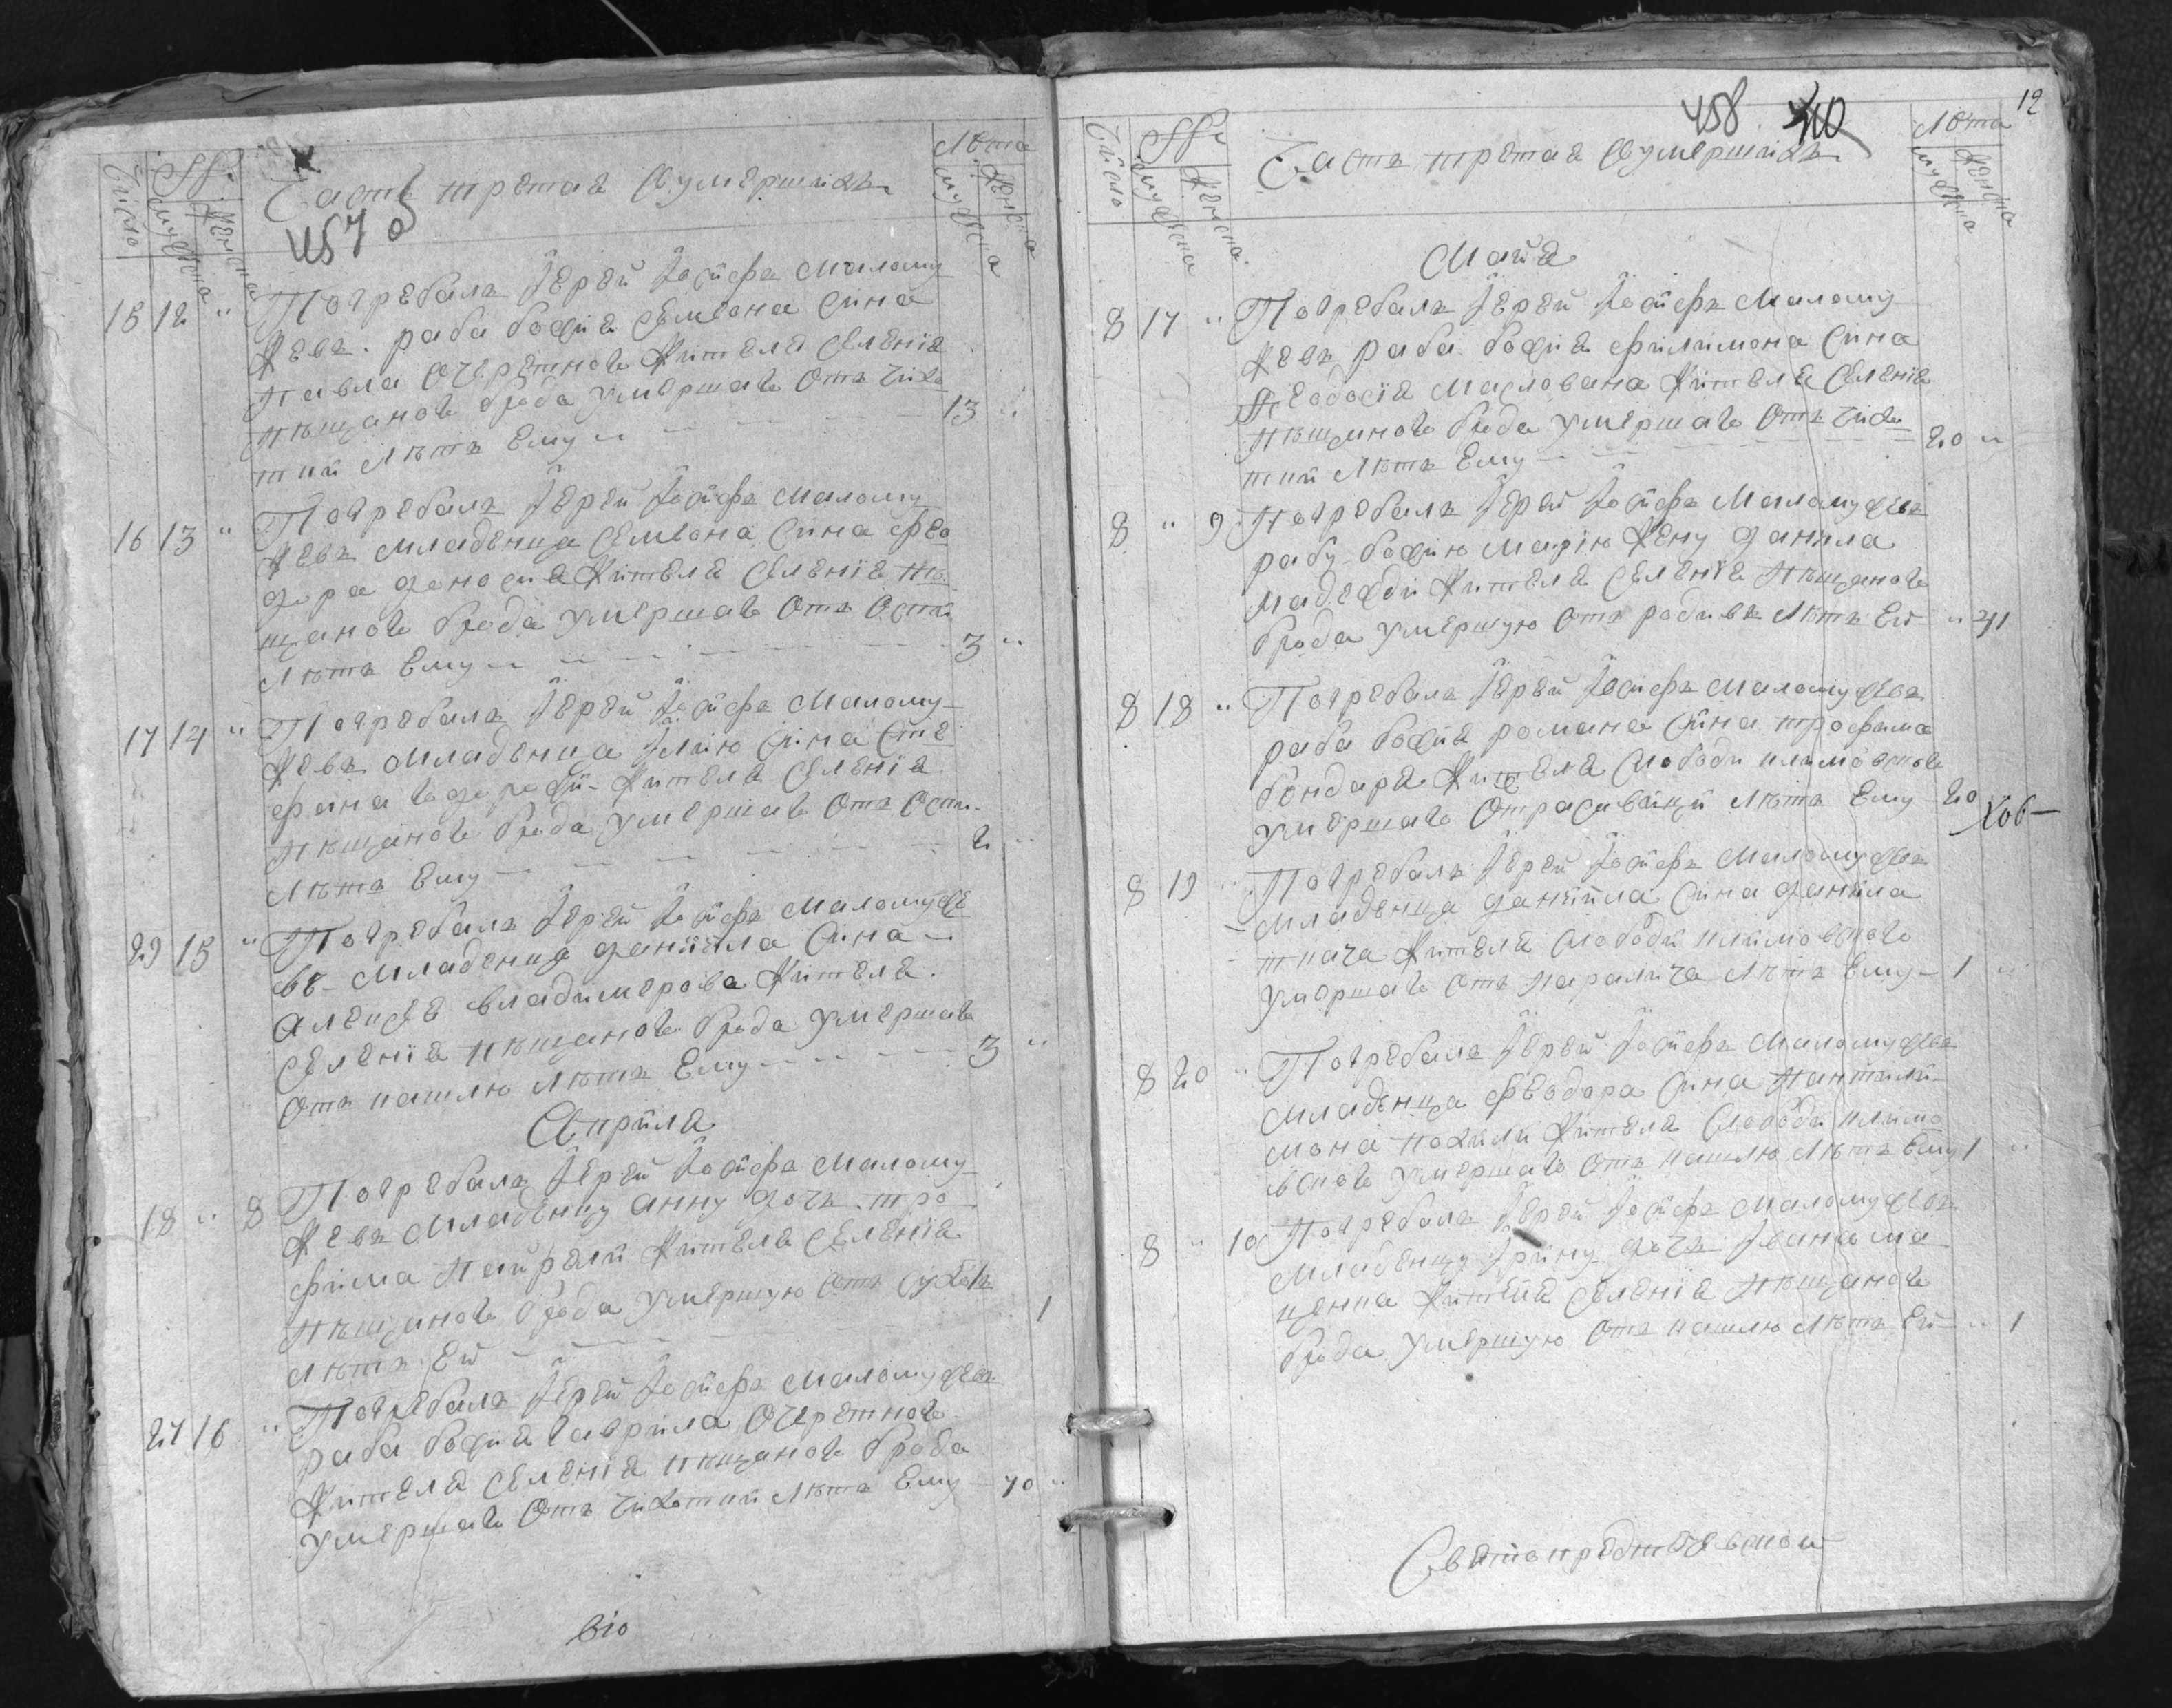 Часть третая О умершихъ
457
Число
№
мужеска
женска
Лета
мужеска
женска
15 12 " Погребалъ Іерей Іосифъ Малому
жевъ раба божия Семиона сина
Павла Очеретного жителя селенія
Пѣщаного брода умершаго Отъ чихо
тки Лѣтъ Ему 13 "
16 13 " Погребалъ Іерей Іосифъ Малому
жевъ младенца Семиона сина Фео
дора жителя селенія Пѣ
щаного брода умершаго Отъ Оспи
Лѣтъ Ему 3 "
17 14 " Погребалъ Іерей Іосифъ Малому
жевъ младенца Ілию сина Сте
фана жителя селенія
Пѣщаного брода умершаго Отъ Оспи
Лѣтъ Ему 2 "
29 15 " Погребалъ Іерей Іосифъ Маломуже
въ младенца Даніила сина
Алексѣя Владимерова жителя
селенія Пѣщаного брода умершаго
Отъ кашлю Лѣтъ Ему 3 "
Априля
18 " 8 Погребалъ Іерей Іосифъ Малому
жевъ младенцу Анну дочь тро
фима жителя селенія
Пѣщаного брода умершую Отъ сухотъ
Лѣтъ Ей " 1
27 16 " Погребалъ Іерей Іосифъ Маломужевъ
раба божия Гаврила Очеретного
жителя селенія Пѣщаного брода
умершаго Отъ чихотки Лѣтъ Ему 70 "
12
458 410
Часть третая О умершихъ
Число
№
мужеска
женска
Лета
мужеска
женска
Майя
8 17 " Погребалъ Іерей Іосифъ Малому
жевъ раба божия Филимона сина
Феодосія Маслована жителя селенія
Пѣщаного брода умершаго Отъ чихо
тки Лѣтъ Ему 20 "
8 " 9 Погребалъ Іерей Іосифъ Маломужевъ
рабу божию Марію жену Данила
жителя селенія Пѣщаного
брода умершую Отъ родивъ Лѣтъ Ей " 41
8 18 " Погребалъ Іерей Іосифъ Маломужевъ
раба божия Романа сина трофима
бондаря жителя слободи
умершаго Лѣтъ Ему 20
8 19 " Погребалъ Іерей Іосифъ Маломужевъ
младенца Даніила сина Данила
ткача жителя слободи
умершаго Отъ паралича Лѣтъ Ему 1 "
8 20 " Погребалъ Іерей Іосифъ Маломужевъ
младенца Феодора сина Пантили
мона жителя слободи
умершаго Отъ кашлю Лѣтъ Ему 1 "
8 " 10 Погребалъ Іерей Іосифъ Маломужевъ
младенцу Ірину дочь Івана Ма
ценка жителя селенія Пѣщаного
брода умершую Отъ кашлю Лѣтъ Ей " 1